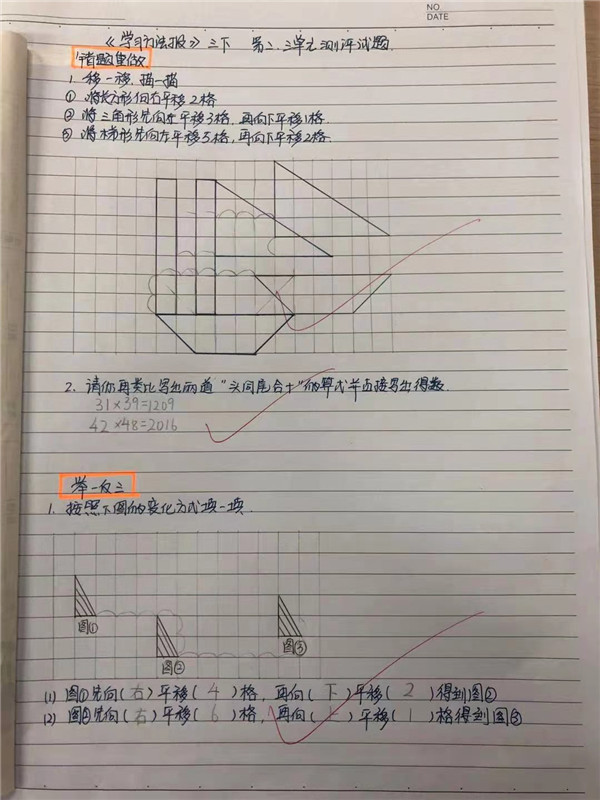 NO
DATE
《学习方法报》三下 第二、三单元测评试题.
错题重做
1. 移一移,描一描
① 将长方形向右平移2格
② 将三角形先向左平移3格,再向下平移1格.
③ 将梯形先向左平移5格,再向下平移2格.
2. 请你再类比写出两道“头同尾合十”的算式并直接写出得数.
31×39=1209
42×48=2016
举一反三
1. 按照下图的变化方式填一填.
图①
图②
图③
(1) 图①先向(右)平移(4)格,再向(下)平移(2)得到图②
(2) 图②先向(右)平移(6)格,再向(上)平移(1)格得到图③